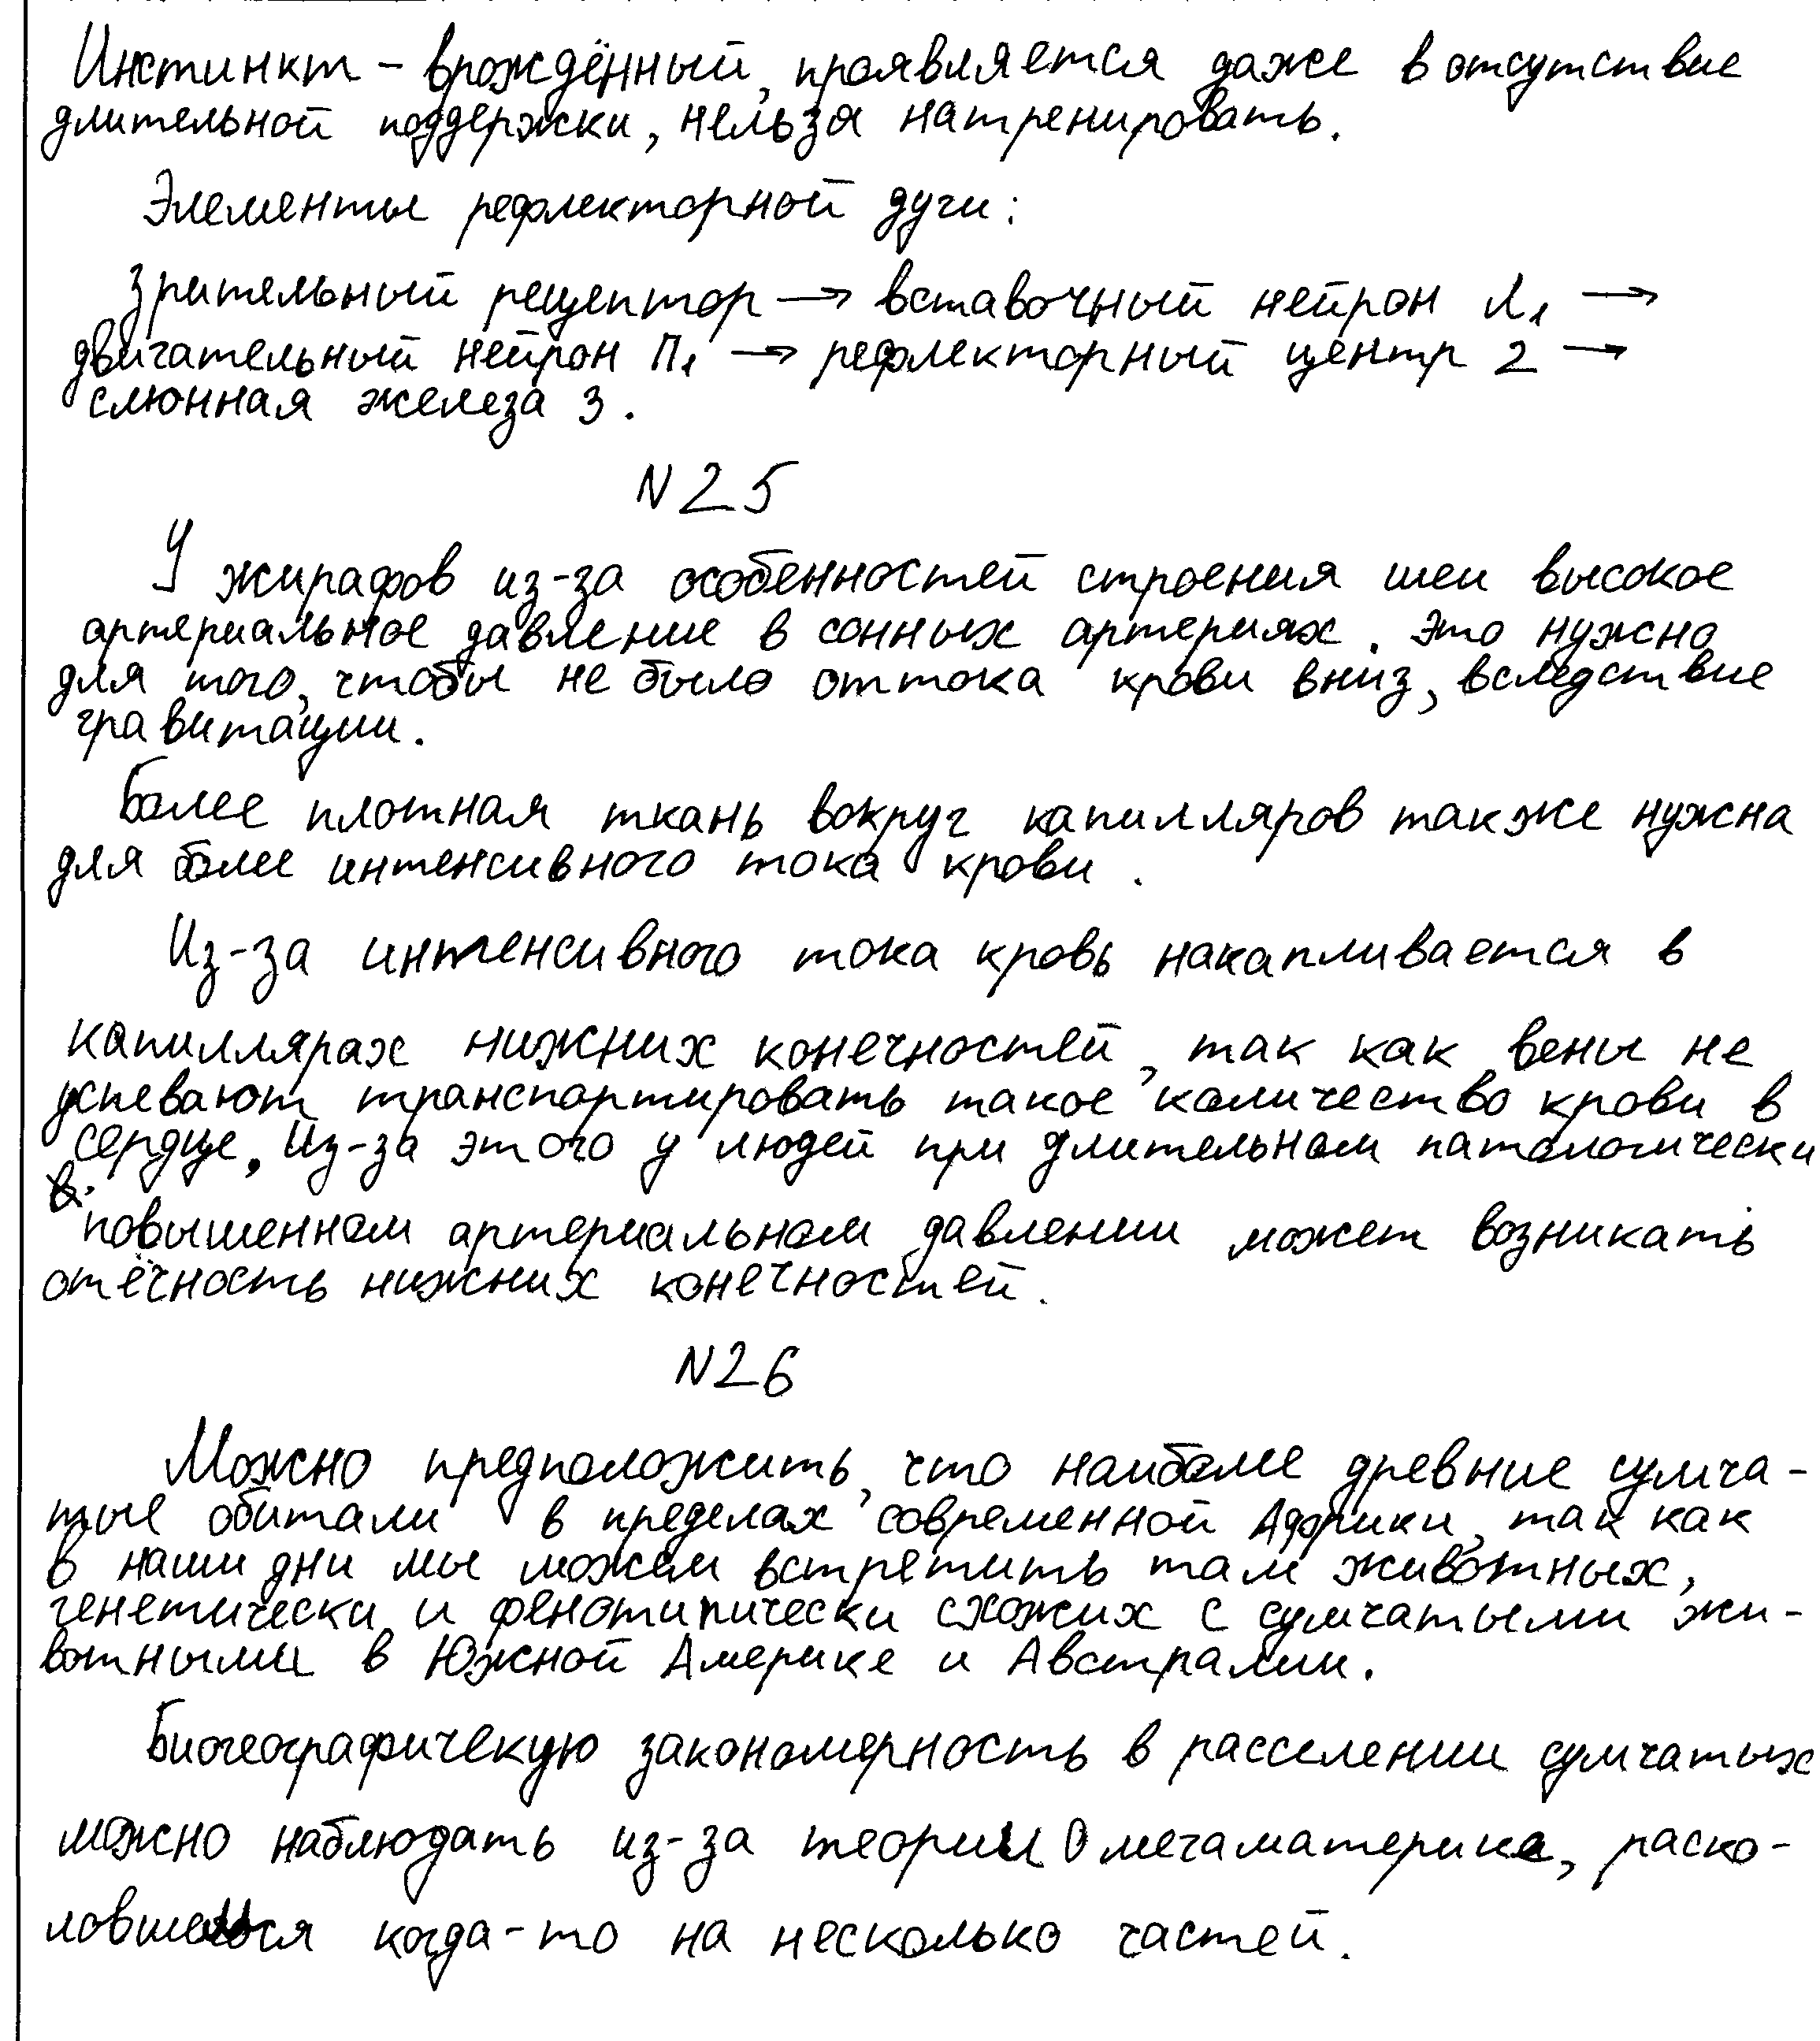 Инстинкт - врождённый, проявляется даже в отсутствие
длительной поддержки, нельзя натренировать.
Элементы рефлекторной дуги:
Зрительный рецептор → вставочный нейрон Л₁ →
двигательный нейрон П₁ → рефлекторный центр 2 →
слюнная железа 3.
N25
У жирафов из-за особенностей строения шеи высокое
артериальное давление в сонных артериях. Это нужно
для того, чтобы не было оттока крови вниз, вследствие
гравитации.
Более плотная ткань вокруг капилляров также нужна
для более интенсивного тока крови.
Из-за интенсивного тока кровь накапливается в
капиллярах нижних конечностей, так как вены не
успевают транспортировать такое количество крови в
сердце. Из-за этого у людей при длительном патологически
повышенном артериальном давлении может возникать
отёчность нижних конечностей.
N26
Можно предположить, что наиболее древние сумча-
тые обитали в пределах современной Африки, так как
в наши дни мы можем встретить там животных,
генетически и фенотипически схожих с сумчатыми жи-
вотными в Южной Америке и Австралии.
Биогеографичекую закономерность в расселении сумчатых
можно наблюдать из-за теории о мегаматерике, раско-
ловшемся когда-то на несколько частей.